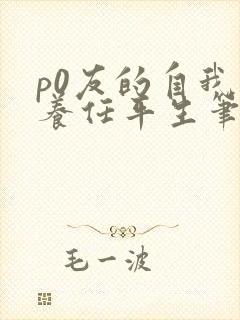 p0友的自我
养任平生笔
毛一波